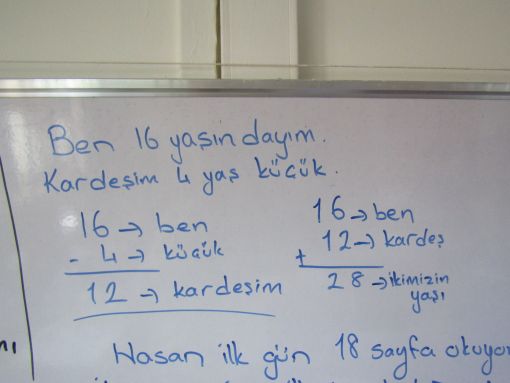 Ben 16 yaşındayım.
Kardeşim 4 yaş küçük.
16 → ben
- 4 → küçük
12 → kardeşim
16 → ben
+ 12 → kardeş
28 → ikimizin
yaşı
Hasan ilk gün 18 sayfa okuyor